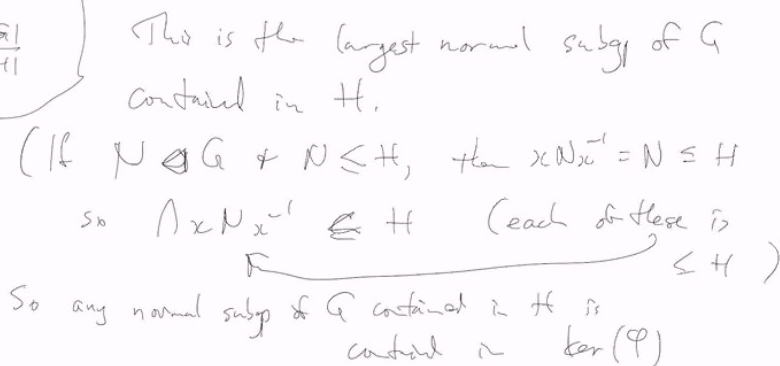 G|
H|
This is the largest normal subgp of G
contained in H.
(If N ⊲ G & N ≤ H, then xNx⁻¹ = N ≤ H
so ⋂xNx⁻¹ ≤ H (each of these is
≤ H )
So any normal subgp of G contained in H is
contained in ker(φ)